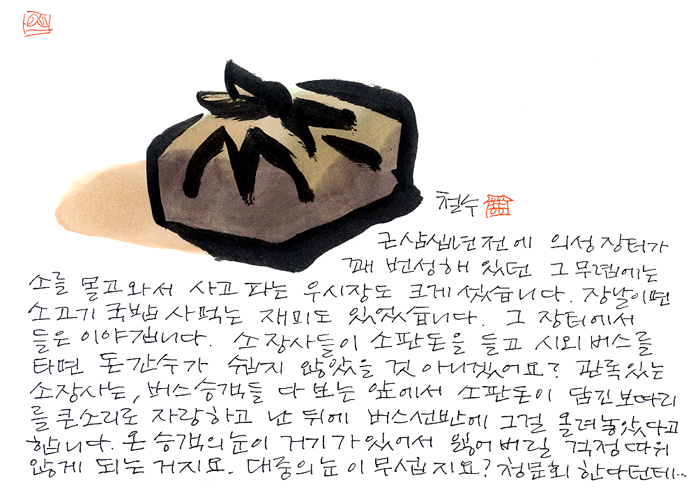 철수
근삼십년전에 의성장터가
꽤 번성해 있던 그무렵에는
소를 몰고와서 사고 파는 우시장도 크게 섰습니다. 장날이면
소고기 국밥 사먹는 재미도 있었습니다. 그 장터에서
들은이야깁니다. 소장사들이 소판돈을 들고 시외버스를
타면 돈간수가 쉽지 않았을 것 아니겠어요? 관록있는
소장사는, 버스승객들 다 보는 앞에서 소판돈이 담긴보따리
를큰소리로 자랑하고 난 뒤에 버스선반에 그걸 올려놓았다고
합니다. 온 승객의눈이 거기가있어서 잃어버릴 걱정따위
않게 되는거지요. 대중의눈이무섭지요? 청문회한다던데…